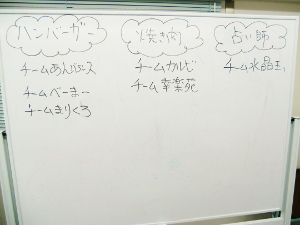 ハンバーガー
チームあんバランス
チームべーまー
チームまりくろ
焼き肉
チームカルビ
チーム幸楽苑
占い師
チーム水晶玉